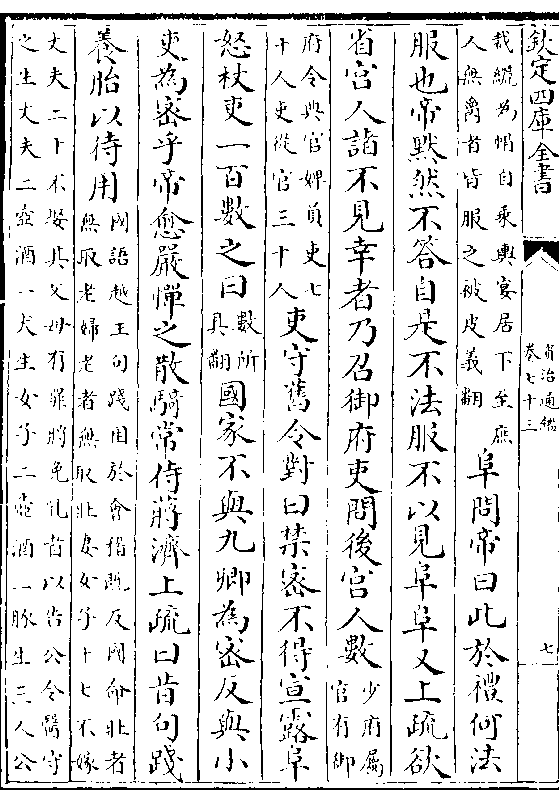 欽定四庫全書
資治通鑑
卷七十三
七
裁纚為帽自乘輿宴居下至庶
人無爵者皆服之被皮義翻
阜問帝曰此於禮何法
服也帝默然不答自是不法服不以見阜阜又上疏欲
省宮人諸不見幸者乃召御府吏問後宮人數
少府屬
官有御
府令典官婢員吏七
十人吏從官三十人
吏守舊令對曰禁密不得宣露阜
怒杖吏一百數之曰
數所
具翻
國家不與九卿為密反與小
吏為密乎帝愈嚴憚之散騎常侍蔣濟上疏曰昔句踐
養胎以待用
國語越王句踐困於會稽既反國命壯者
無取老婦老者無取壯妻女子十七不嫁
丈夫二十不娶其父母有罪將免乳者以告公令醫守
之生丈夫二壺酒一犬生女子二壺酒一豚生三人公